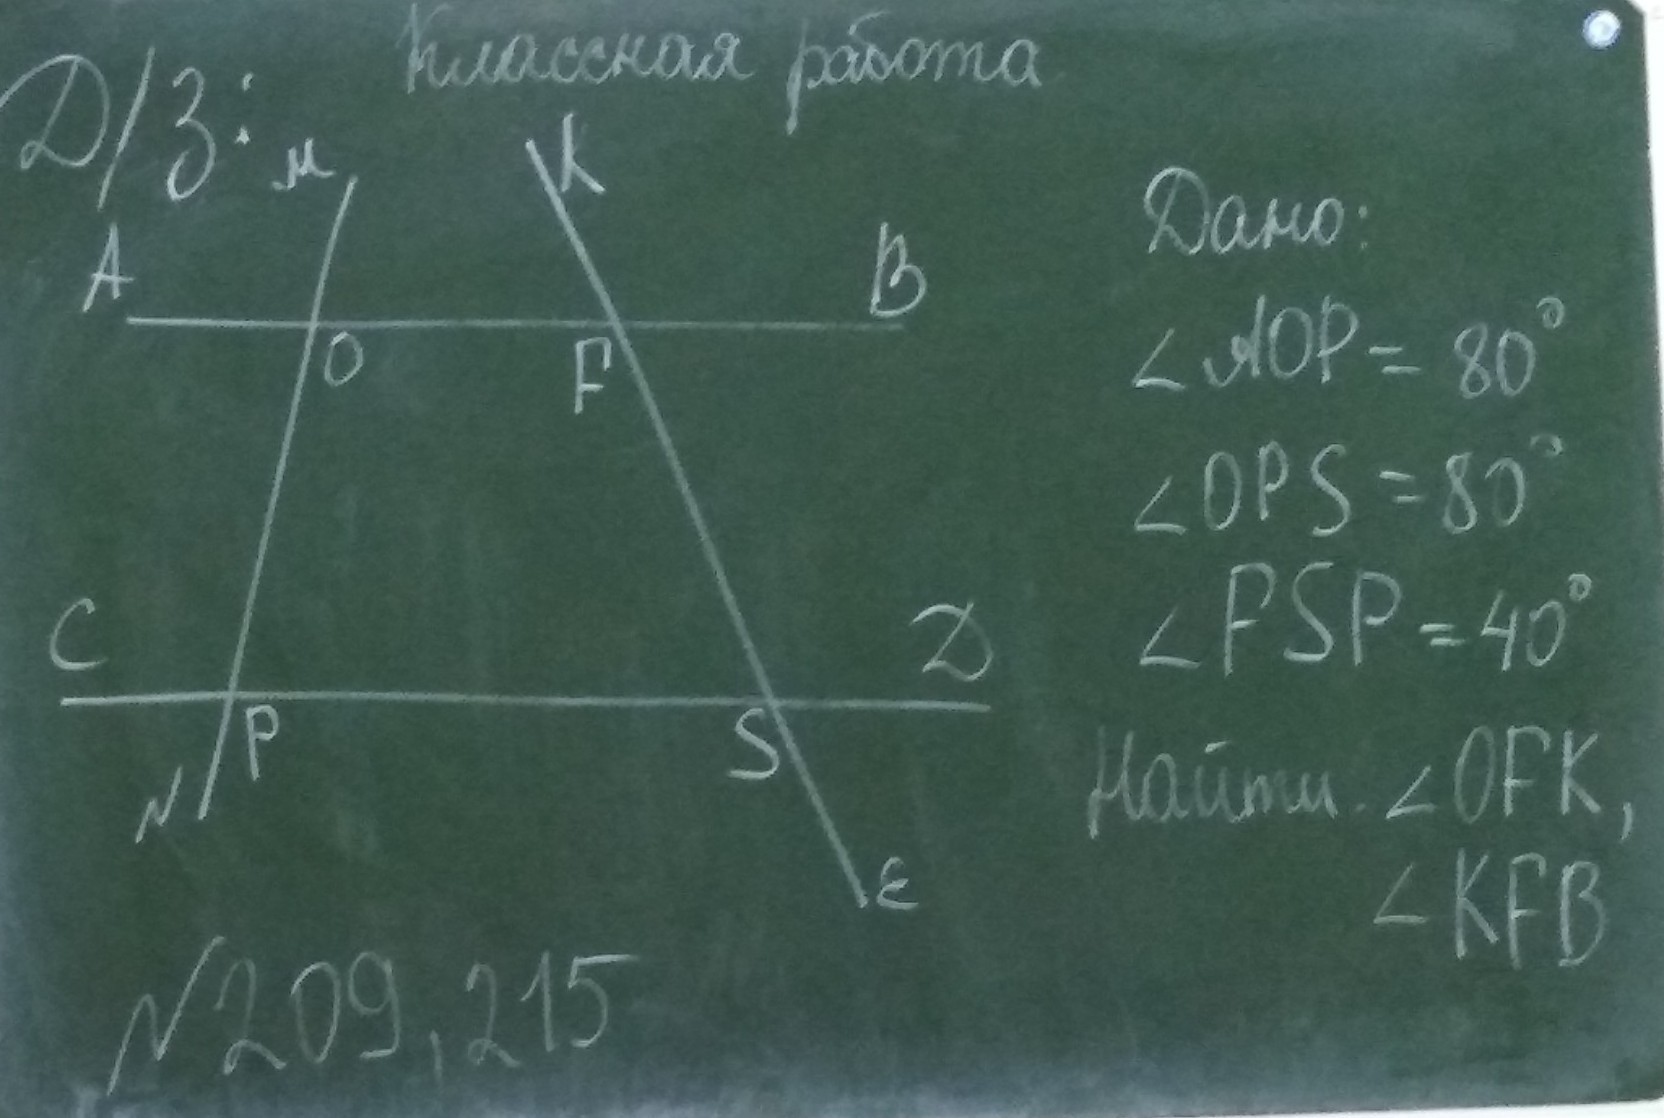 Классная работа
Д/З:
M K
A B
O F
C D
P S
N E
Дано:
∠AOP = 80°
∠OPS = 80°
∠FSP = 40°
Найти. ∠OFK,
∠KFB
№209, 215